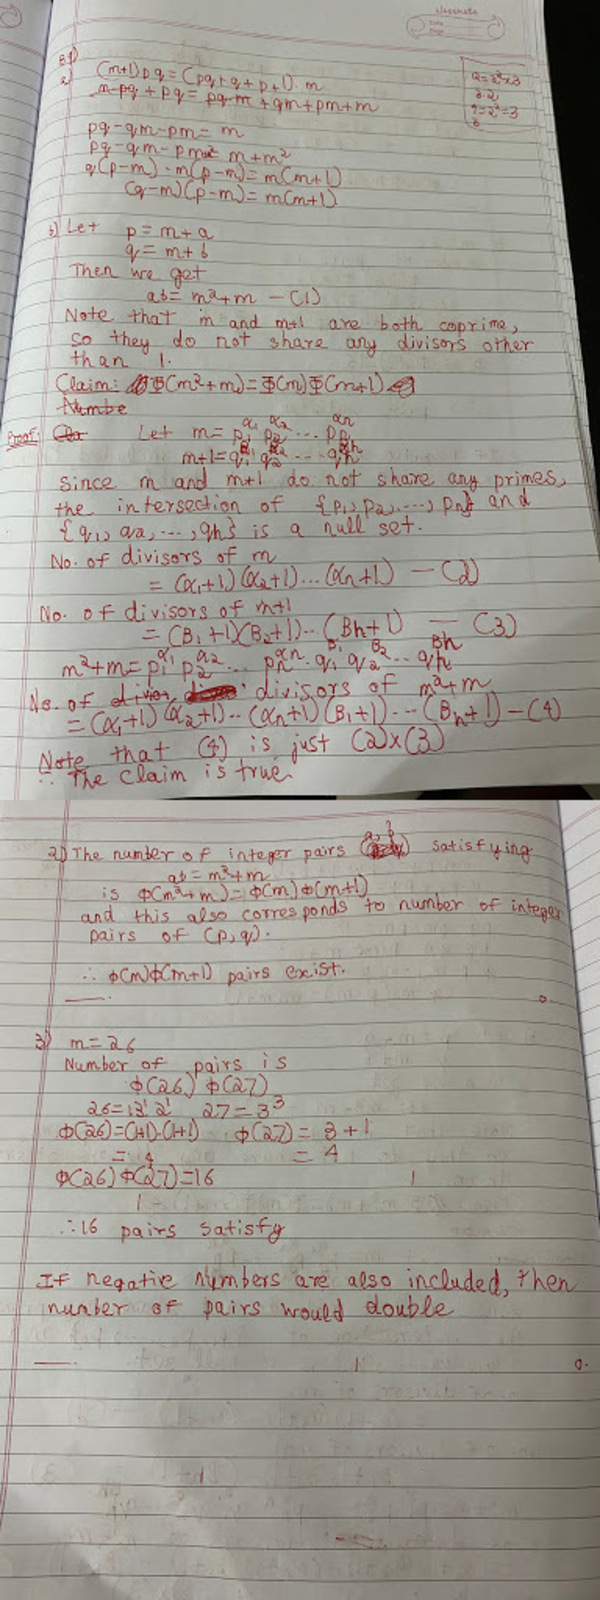 classmate
Date
Page
B4)
a) (m+1)pq = (pq+q+p+1).m
m pq + pq = pq m + qm + pm + m
12 = 2²×3
3.2
9 = 2² = 3
6
pq - qm - pm = m
pq - qm - pm + m² = m + m²
q(p-m) - m(p-m) = m(m+1)
(q-m)(p-m) = m(m+1)
b) Let p = m+a
q = m+b
Then we get
ab = m²+m - (1)
Note that m and m+1 are both coprime,
so they do not share any divisors other
than 1.
Claim: Φ(m²+m) = Φ(m) Φ(m+1)
Numbe
Proof: Let m = p₁^α₁ p₂^α₂ ... pn^αn
m+1 = q₁^B₁ q₂^B₂ ... qh^Bh
Since m and m+1 do not share any primes,
the intersection of {p₁, p₂, ..., pn} and
{q₁, q₂, ..., qh} is a null set.
No. of divisors of m
= (α₁+1)(α₂+1)...(αn+1) - (2)
No. of divisors of m+1
= (B₁+1)(B₂+1)...(Bh+1) - (3)
m²+m = p₁^α₁ p₂^α₂ ... pn^αn . q₁^B₁ q₂^B₂ ... qh^Bh
No. of divisors of m²+m
= (α₁+1)(α₂+1)...(αn+1)(B₁+1)...(Bh+1) - (4)
Note that (4) is just (2)×(3)
∴ The claim is true.
2) The number of integer pairs satisfying
ab = m²+m
is Φ(m²+m) = Φ(m) Φ(m+1)
and this also corresponds to number of integer
pairs of (p,q).
∴ Φ(m)Φ(m+1) pairs exist.
3) m = 26
Number of pairs is
Φ(26) Φ(27)
26 = 13¹ 2¹ 27 = 3³
Φ(26) = (1+1).(1+1) Φ(27) = 3+1
= 4 = 4
Φ(26) Φ(27) = 16
∴ 16 pairs satisfy
If negative numbers are also included, then
number of pairs would double